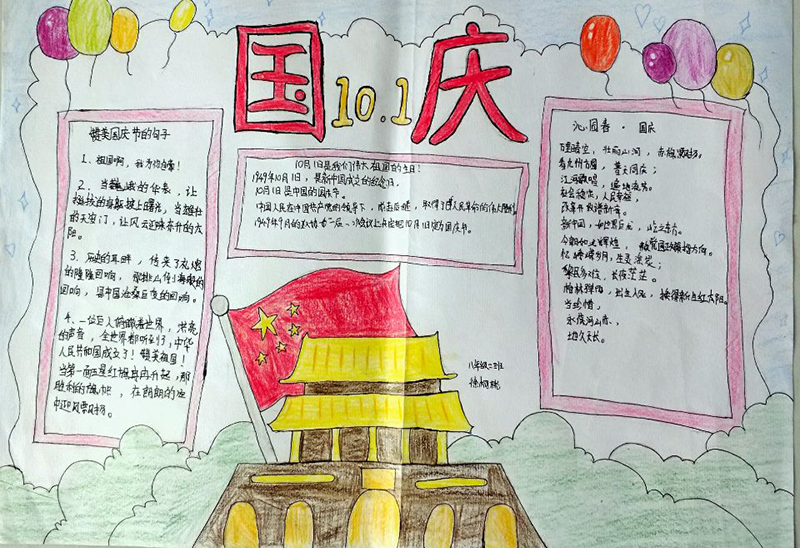 国庆
10.1
赞美国庆节的句子
1、祖国啊，我为你自豪！
2、当巍峨的华表，让
挺拔的身躯披上曙光，当雄壮
的天安门，让风云迎来东升的太
阳。
3、历史的耳畔，传来了礼炮
的隆隆回响，那排山倒海般的
回响，是中国沧桑巨变的回响。
4、一位巨人俯瞰着世界，洪亮
的声音，全世界都听到了，中华
人民共和国成立了！赞美祖国！
当第一面五星红旗冉冉升起，那
胜利的旗帜，在朗朗的
中迎风飘扬。
10月1日是我们伟大祖国的生日！
1949年10月1日，是新中国成立的纪念日。
10月1日是中国的国庆节。
中国人民在中国共产党的领导下，前赴后继，取得了人民革命的伟大胜利。
1949年9月的政协第一届一次会议上决定把10月1日定为国庆节。
沁园春·国庆
壮丽山河，赤旗飘扬。
看九州方圆，普天同庆；
江河歌唱，遍地流芳；
社会稳定，人民幸福，
改革开放谱新章。
新中国，如世界巨龙，屹立东方。
今朝如此辉煌，
忆峥嵘岁月，
长夜茫茫。
换得新生红太阳。
当珍惜，
永保河山
地久天长。
八年级二班